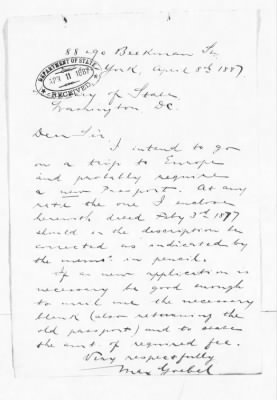 88 & 90 Beekman St.
York, April 8th 1887.
DEPARTMENT OF STATE
APR 11 1887
RECEIVED
y of State
Washington DC.
Dear Sir.
I intend to go
on a trip to Europe
and probably require
a new Passport. At any
rate the one I enclose
herewith dated Feby 3rd 1877
should in the description be
corrected as indicated by
the memo in pencil.
If a new application is
necessary be good enough
to mail me the necessary
blank (also returning the
old passport) and to state
the amt of required fee.
Very respectfully
Max Goebel